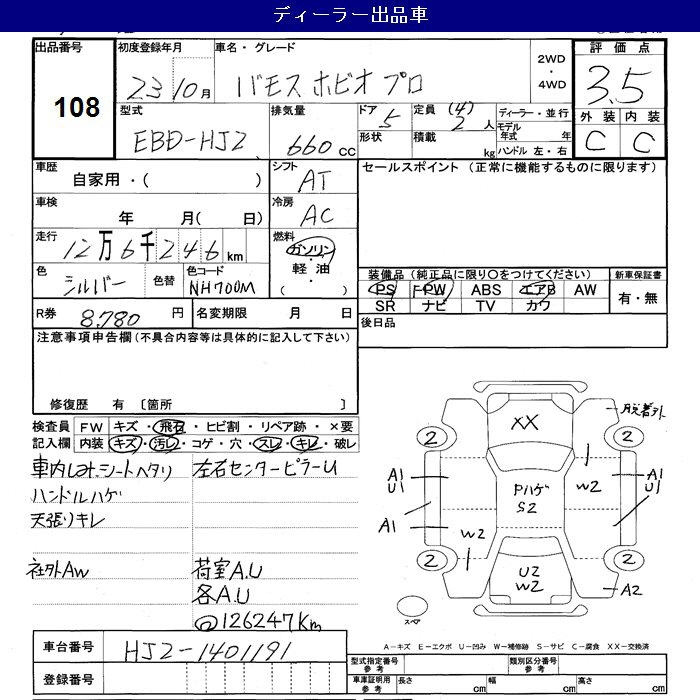 ディーラー出品車
出品番号 108
初度登録年月 23 10月
車名・グレード バモス ホビオ プロ
2WD・4WD
評価点 3.5
型式 EBD-HJ2
排気量 660 cc
ドア 5
形状
定員 (4) 2 人
積載 kg
ディーラー・並行
モデル年式 年
ハンドル 左・右
外装 C
内装 C
車歴 自家用・( )
シフト AT
セールスポイント (正常に機能するものに限ります)
車検 年 月( 日)
冷房 AC
走行 12万6千246km
燃料 ガソリン・軽油・( )
色 シルバー
色替
色コード NH700M
装備品(純正品に限り○をつけてください)
PS PW ABS エアB AW
SR ナビ TV カワ
新車保証書 有・無
R券 8.780 円
名変期限 月 日
後日品
注意事項申告欄(不具合内容等は具体的に記入して下さい)
修復歴 有 〔箇所 〕
検査員記入欄
FW キズ・飛石・ヒビ割・リペア跡・×要
内装 キズ・汚レ・コゲ・穴・スレ・キレ・破レ
車内しみ、シートヘタリ
左右センターピラーU
ハンドルハゲ
天張りキレ
社外AW
荷室A.U
各A.U
@126247Km
XX
脱着外
2
2
A1
U1
Pハゲ
S2
W2
A1
U1
A1
W2
2
2
U2
W2
A2
スペア
A-キズ E-エクボ U-凹み W-補修跡 S-サビ C-腐食 XX-交換済
車台番号 HJ2-1401191
登録番号
型式指定番号 参考
類別区分番号 参考
車庫証明用 参考 長さ cm 幅 cm 高さ cm